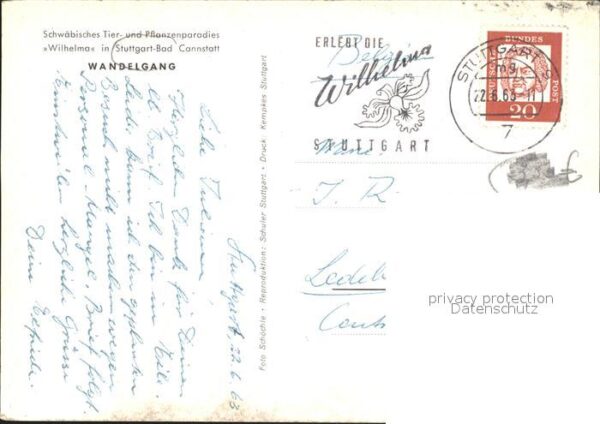 Schwäbisches Tier- und Pflanzenparadies
»Wilhelma« in Stuttgart-Bad Cannstatt
WANDELGANG
Stuttgart, 22.6.63
Herzlichen Dank für Deinen
lb Brief. Ich bin in Eile.
Leider kann ich den geplanten
Besuch nicht machen wegen
Personal Mangel. Brief folgt.
Einstweilen herzliche Grüsse
Dein
Foto Schöchle · Reproduktion: Schuler Stuttgart · Druck Kempkes Stuttgart
ERLEBT DIE
Wilhelma
STUTTGART
STUTTGART 9
mg
22.6.63
7
DEUTSCHE
BUNDES
POST
20
J. R
privacy protection
Datenschutz